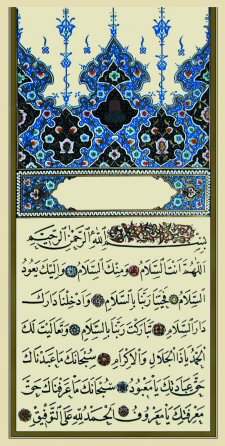 بسم الله الرحمن الرحيم
اللهم انت السلام ومنك السلام واليك يعود
السلام فحينا ربنا بالسلام وادخلنا دارك
دار السلام تباركت ربنا بالسلام وتعاليت لك
الحمد ياذا الجلال والاكرام سبحانك ما عبدناك
حق عبادتك يا معبود سبحانك ما عرفناك حق
معرفتك يا معروف الحمد لله على التوفيق